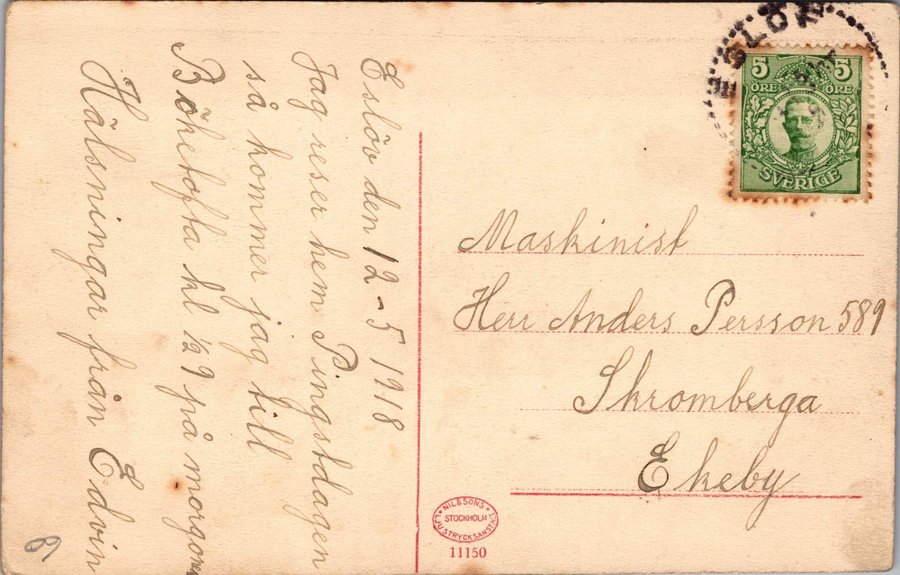 Eslöv den 12-5 1918
Jag reser hem Pingstdagen
så kommer jag till
Böketofta kl ½9 på morgonen
Hälsningar från Edvin
ESLÖV
5 5
ÖRE ÖRE
SVERIGE
Maskinist
Herr Anders Persson 589
Skromberga
Ekeby
NILSSONS
STOCKHOLM
LJUSTRYCKSANSTALT
11150